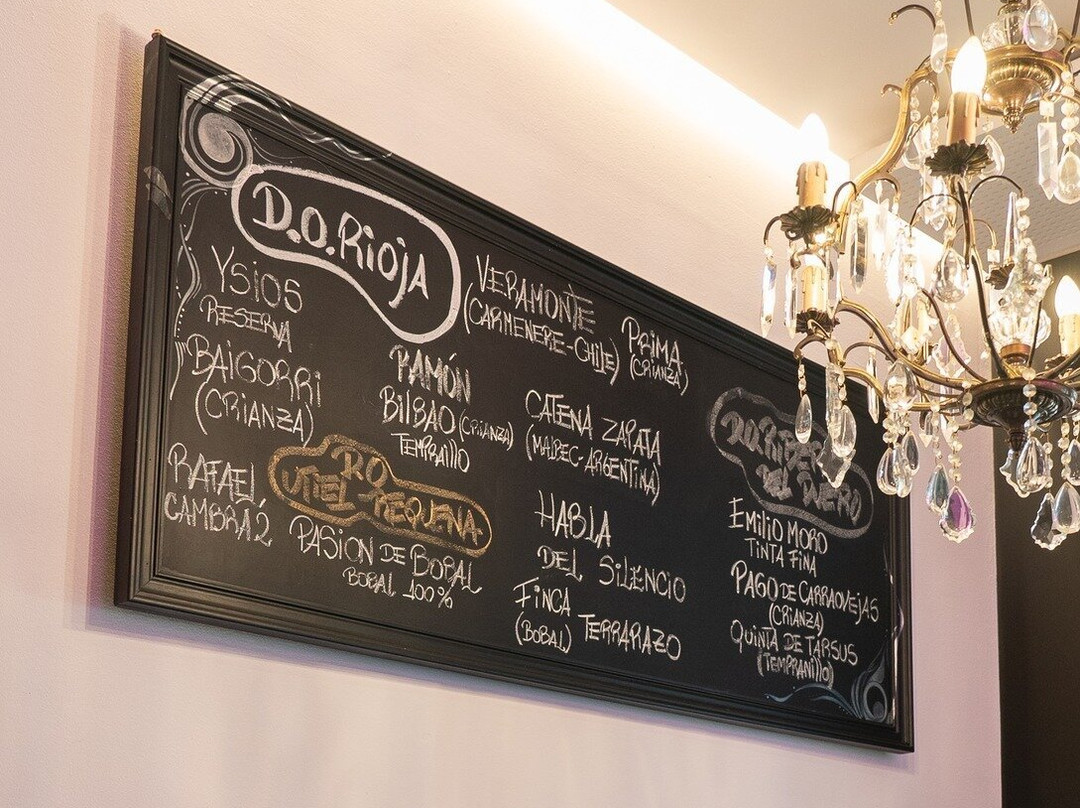 D.O. Rioja
YSIOS
RESERVA
BAIGORRI
(CRIANZA)
RAFAEL
CAMBRA 2
RAMÓN
BILBAO (CRIANZA)
TEMPRAILLO
RO
UTIEL-REQUENA
PASION DE BOBAL
BOBAL 100%
VERAMONTE
(CARMENERE-CHILE)
PRIMA
(CRIANZA)
CATENA ZAPATA
(MALBEC-ARGENTINA)
HABLA
DEL SILENCIO
FINCA
(BOBAL) TERRARAZO
D.O. RIBERA
DEL DUERO
EMILIO MORO
TINTA FINA
PAGO DE CARRAOVEJAS
(CRIANZA)
QUINTA DE TARSUS
(TEMPRANILLO)